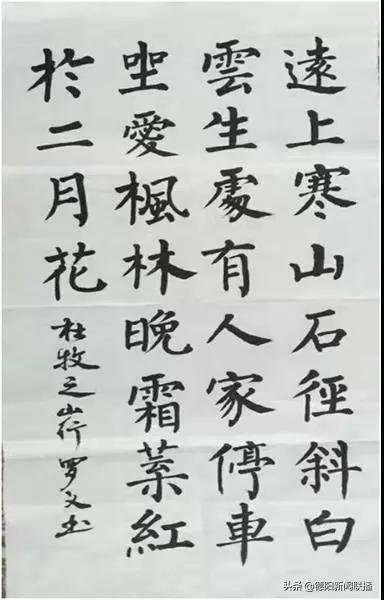 遠上寒山石徑斜白
雲生處有人家停車
坐愛楓林晚霜葉紅
於二月花
杜牧之山行 罗文书
头条 @德阳新闻联播